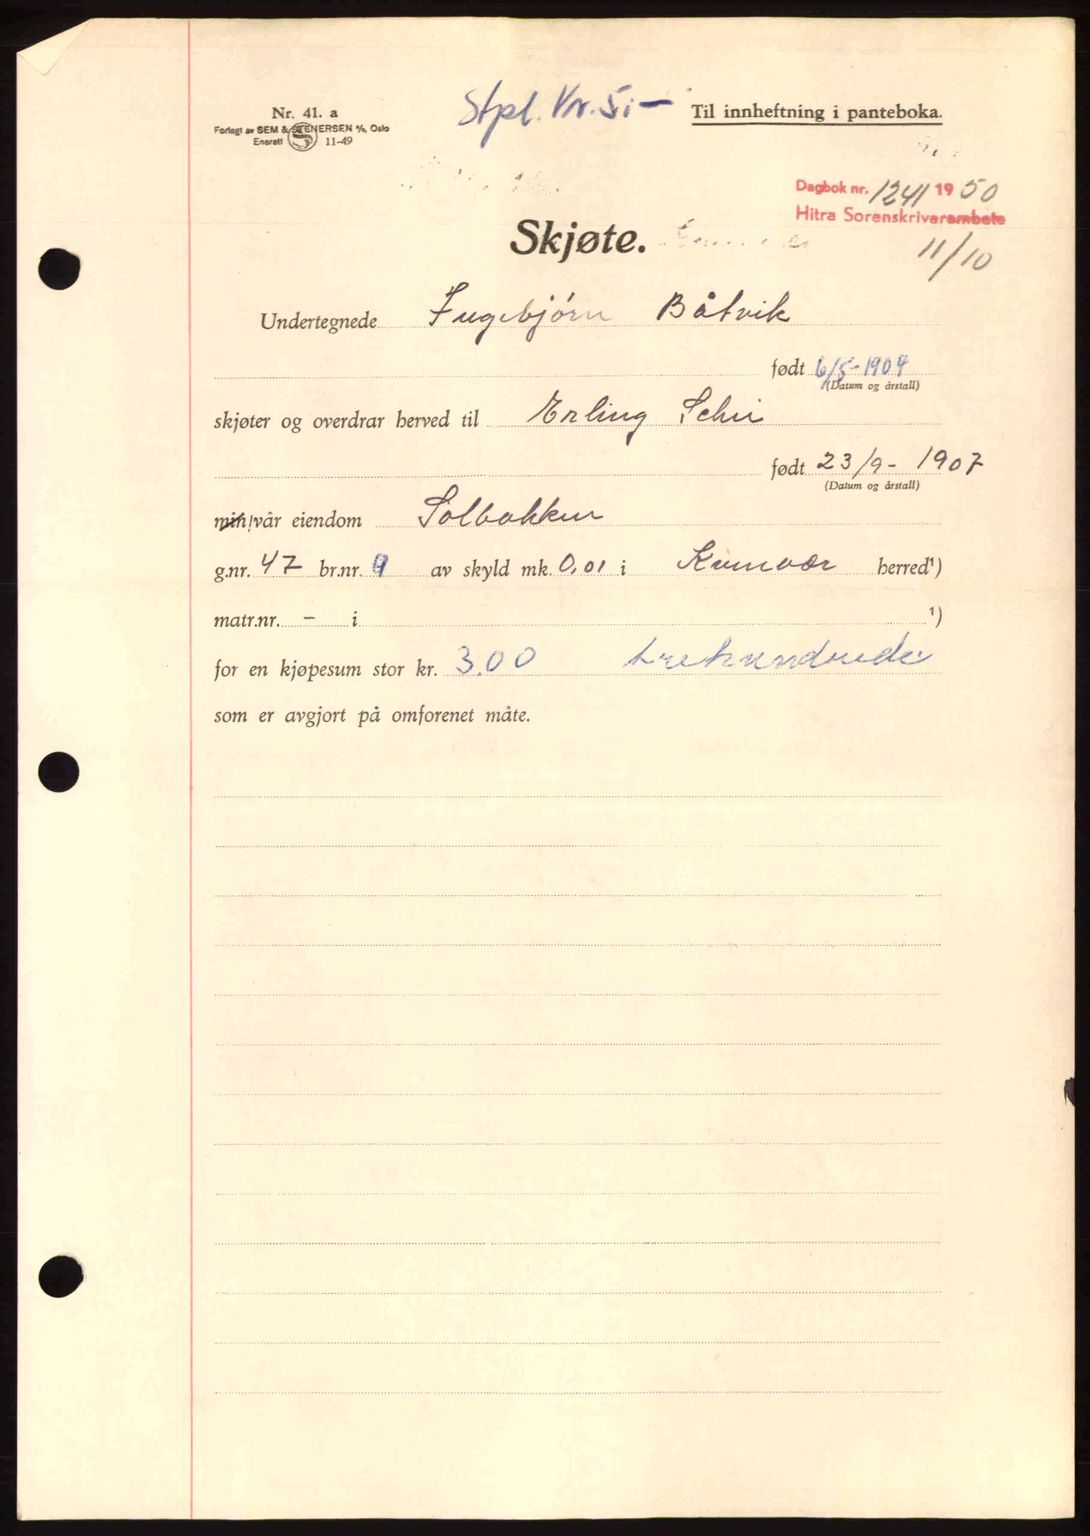 Nr. 41. a
Forlagt av SEM & STENERSEN A/S, Oslo
Enerett 11-49
Stpl. Kr. 5,-
Til innheftning i panteboka.
Dagbok nr. 1241 1950
Hitra Sorenskriverambete
11/10
Skjøte.
Undertegnede Ingebjörn Båtvik
født 6/5-1904
(Datum og årstall)
skjøter og overdrar herved til Erling
født 23/9-1907
(Datum og årstall)
min/vår eiendom Solbakken
g.nr. 47 br.nr. 9 av skyld mk. 0,01 i Kvenvær herred¹)
matr.nr. - i ¹)
for en kjøpesum stor kr. 300 trehundrede
som er avgjort på omforenet måte.